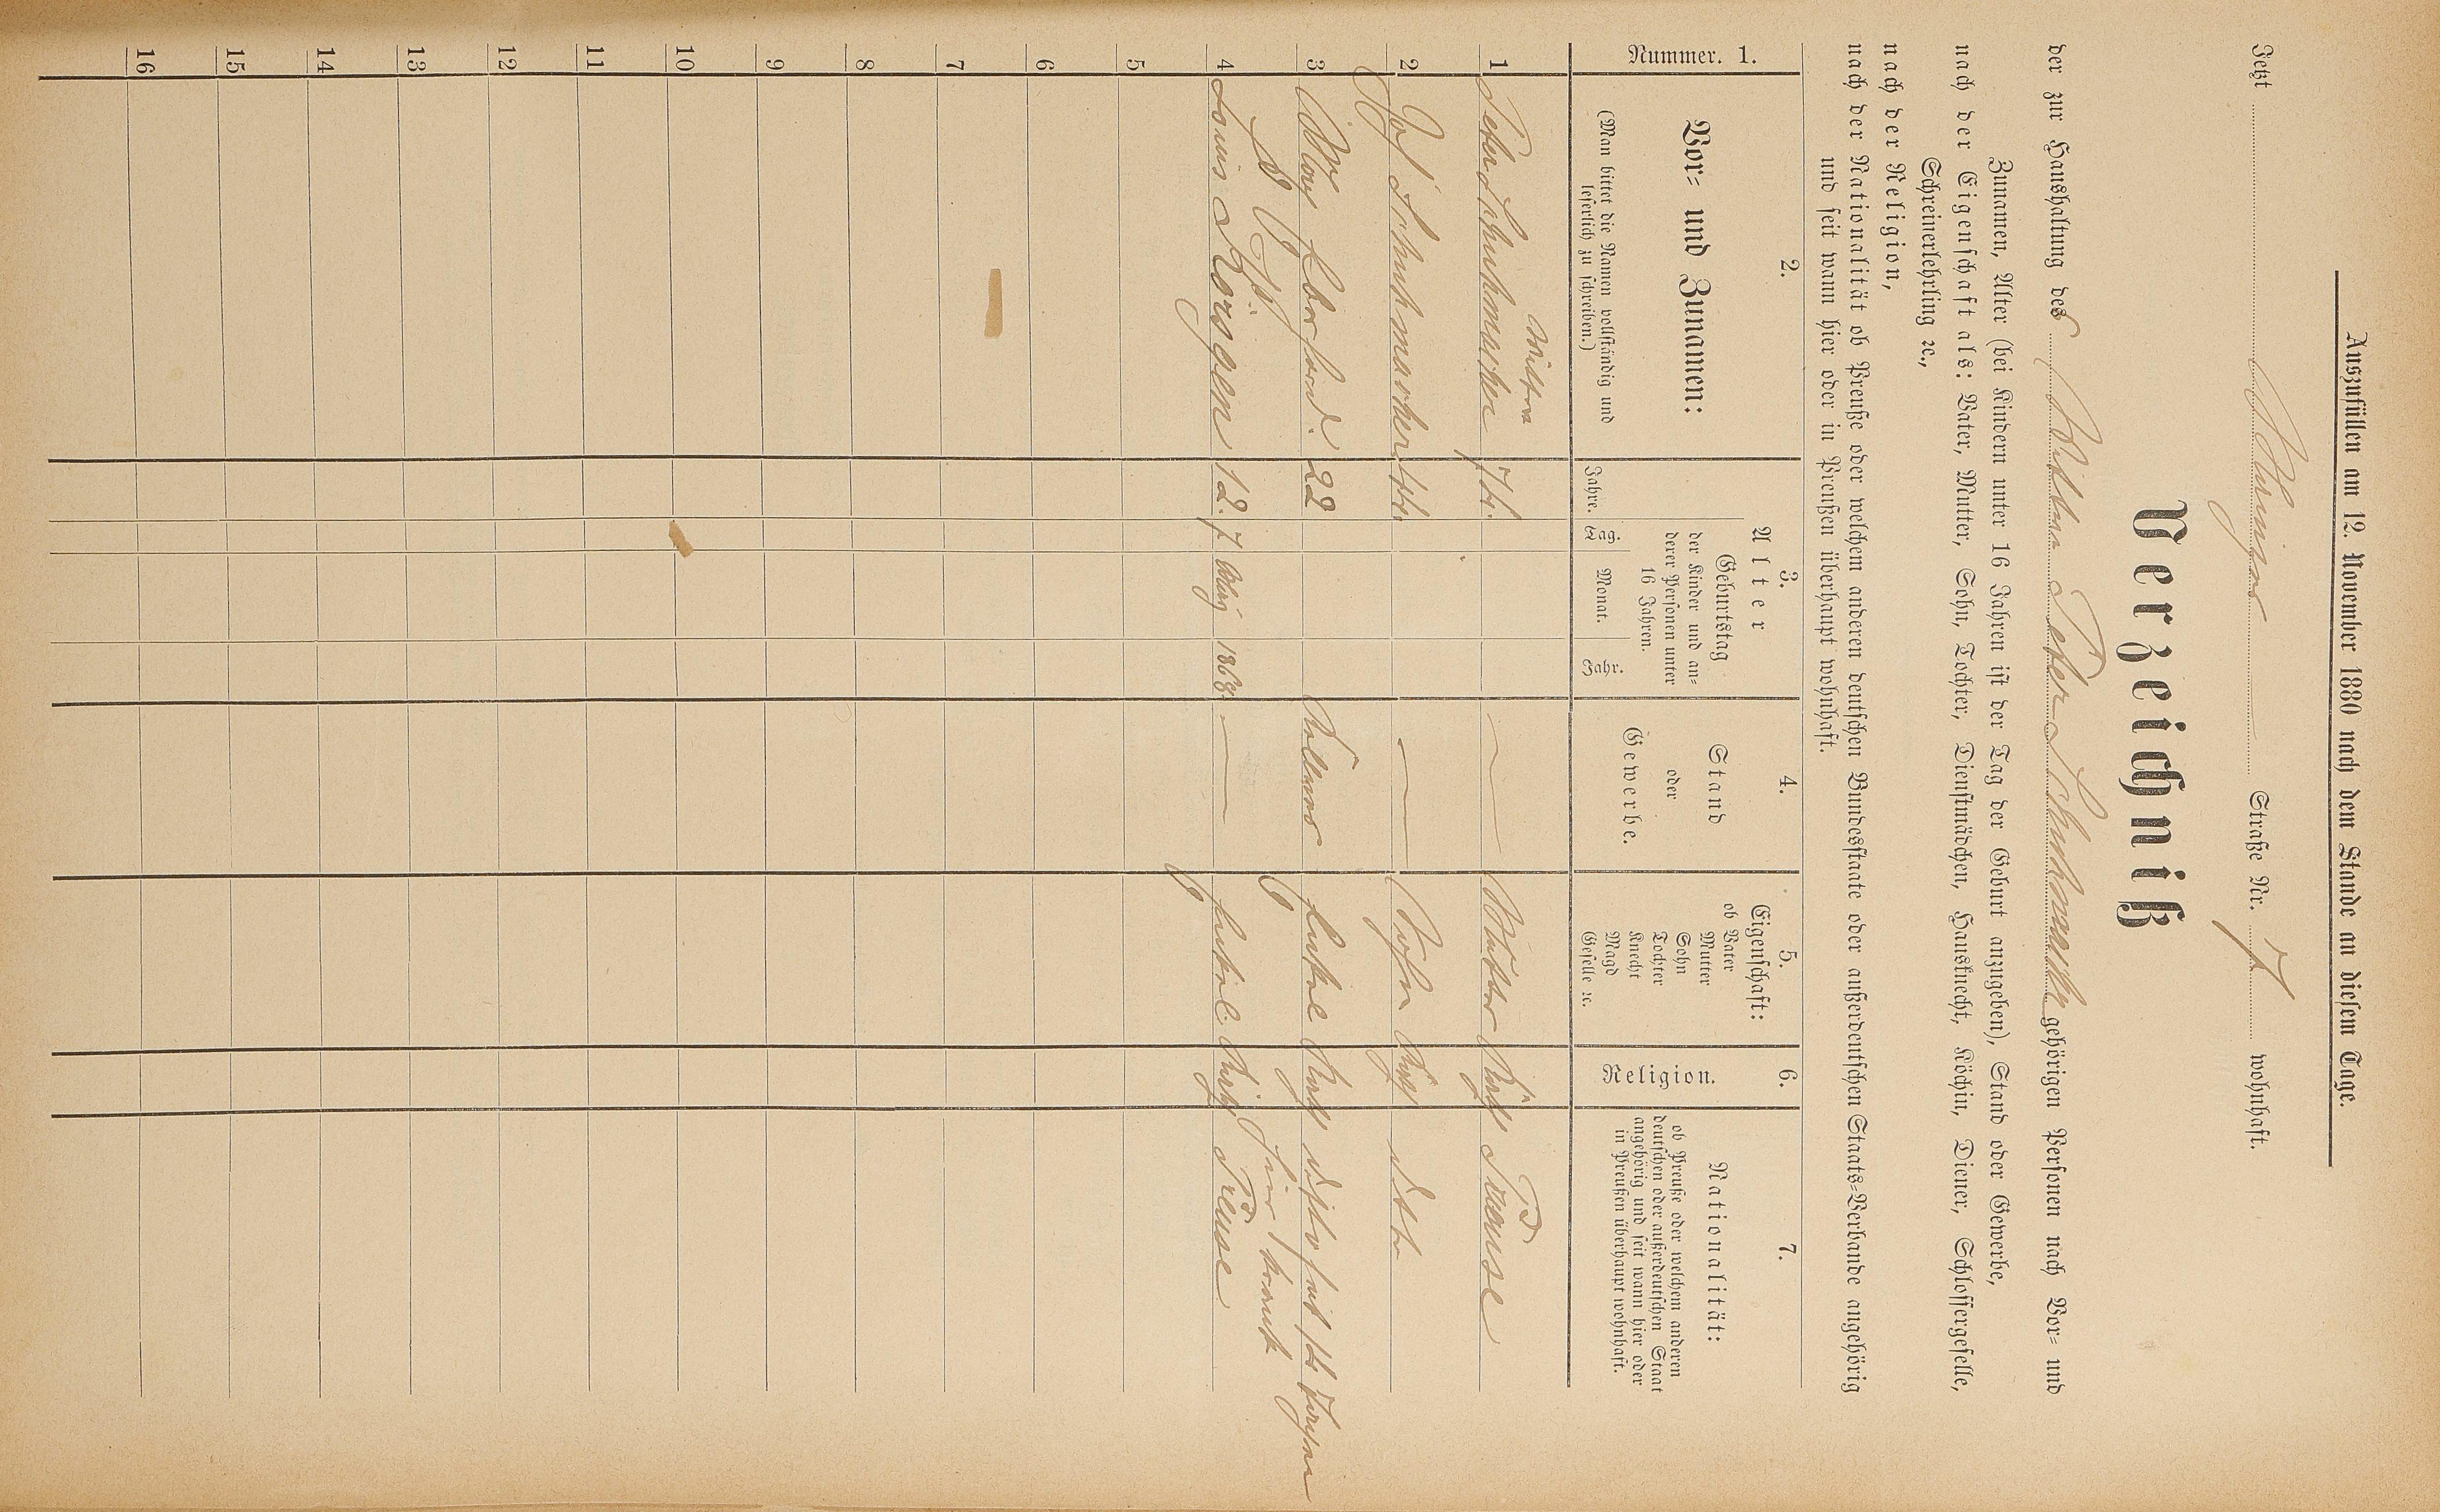 Auszufüllen am 12. November 1880 nach dem Stande an diesem Tage.
Jetzt Straße Nr. 7 wohnhaft.
Verzeichniß
der zur Haushaltung des Peter Schuhmacher gehörigen Personen nach Vor- und
Zunamen, Alter (bei Kindern unter 16 Jahren ist der Tag der Geburt anzugeben), Stand oder Gewerbe,
nach der Eigenschaft als: Vater, Mutter, Sohn, Tochter, Dienstmädchen, Hausknecht, Köchin, Diener, Schlossergeselle,
Schreinerlehrling ꝛc.,
nach der Religion,
nach der Nationalität ob Preuße oder welchem anderen deutschen Bundesstaate oder außerdeutschen Staats-Verbande angehörig
und seit wann hier oder in Preußen überhaupt wohnhaft.
Nummer. 1.
2.
Vor- und Zunamen:
(Man bittet die Namen vollständig und
leserlich zu schreiben.)
3.
Alter
Jahre.
Geburtstag
der Kinder und an-
derer Personen unter
16 Jahren.
Tag. Monat. Jahr.
4.
Stand
oder
Gewerbe.
5.
Eigenschaft:
ob Vater
Mutter
Sohn
Tochter
Knecht
Magd
Geselle ꝛc.
6.
Religion.
7.
Nationalität:
ob Preuße oder welchem anderen
deutschen oder außerdeutschen Staat
angehörig und seit wann hier oder
in Preußen überhaupt wohnhaft.
Wittwe
1 Peter Schuhmacher 74. — Mutter Kath Preuse
2 Jos Schuhmacher 44. — Sohn Kath dito
3 22 Kellner Enkel Kath dito seit 14 Tagen
hier krank
4 Louis Körsgen 12. 7 May 1868. — Enkel. Kath Preuse
5
6
7
8
9
10
11
12
13
14
15
16